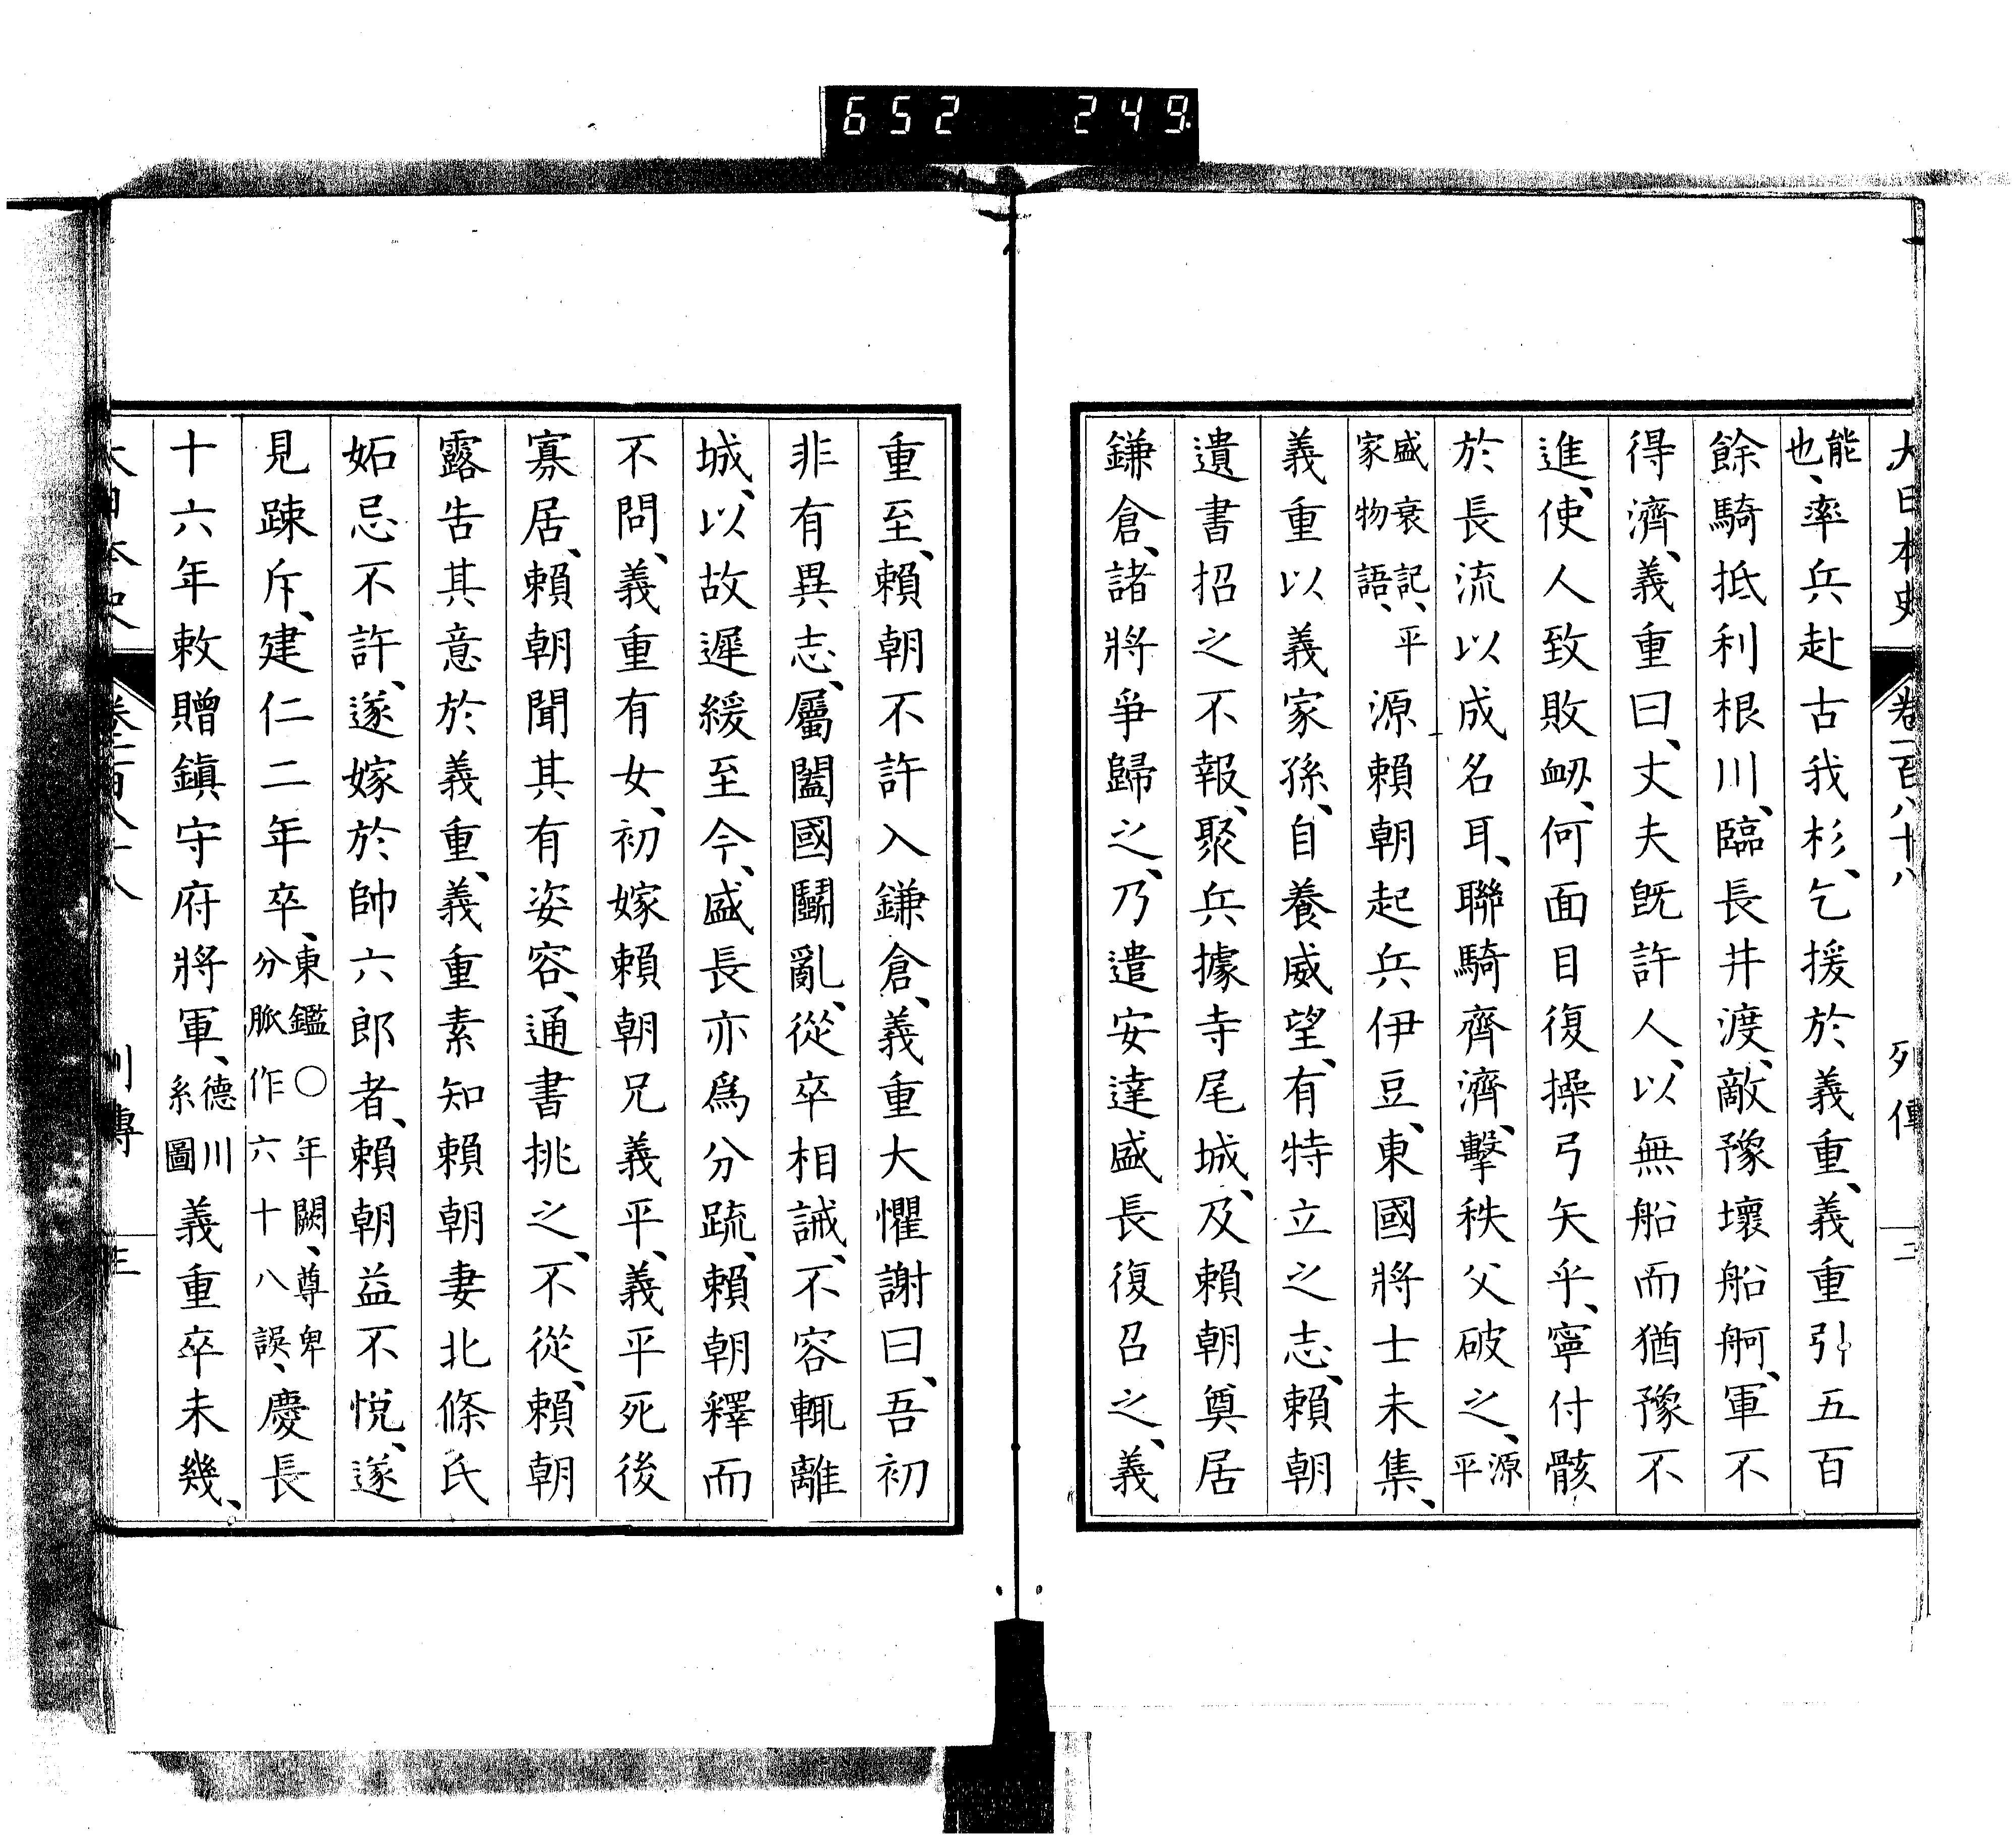 652 249
大日本史 卷一百八十八 列傳 二
能也、率兵赴古我杉、乞援於義重、義重引五百
餘騎抵利根川、臨長井渡、敵豫壞船舸、軍不
得濟、義重曰、丈夫旣許人、以無船而猶豫不
進、使人致敗衂、何面目復操弓矢乎、寧付骸
於長流以成名耳、聯騎齊濟、擊秩父破之、源平
盛衰記、平家物語、源賴朝起兵伊豆、東國將士未集、
義重以義家孫、自養威望、有特立之志、賴朝
遺書招之不報、聚兵據寺尾城、及賴朝奠居
鎌倉、諸將爭歸之、乃遣安達盛長復召之、義
重至、賴朝不許入鎌倉、義重大懼謝曰、吾初
非有異志、屬闔國鬭亂、從卒相誡、不容輒離
城、以故遲緩至今、盛長亦爲分疏、賴朝釋而
不問、義重有女、初嫁賴朝兄義平、義平死後
寡居、賴朝聞其有姿容、通書挑之、不從、賴朝
露告其意於義重、義重素知賴朝妻北條氏
妬忌不許、遂嫁於帥六郎者、賴朝益不悅、遂
見踈斥、建仁二年卒、東鑑〇年闕、尊卑分脈作六十八誤、慶長
十六年敕贈鎭守府將軍、德川系圖義重卒未幾、
大日本史 卷一百八十八 列傳 三